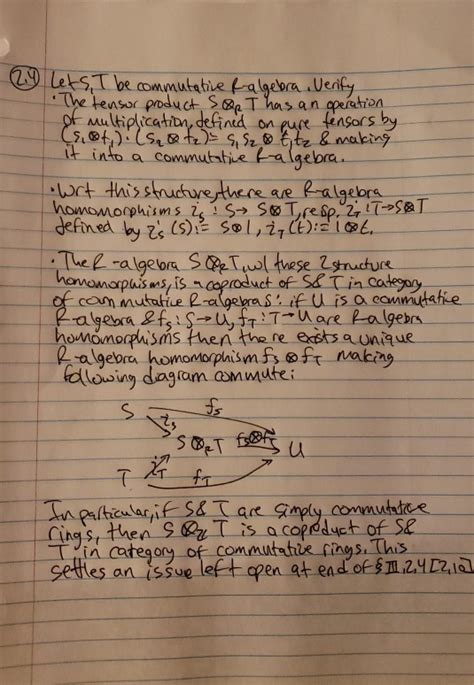 2.4 Let S,T be commutative R-algebra. Verify
• The tensor product S⊗_R T has an operation
of multiplication, defined on pure tensors by
(s₁⊗t₁)·(s₂⊗t₂):= s₁s₂⊗t₁t₂ & making
it into a commutative R-algebra.
• Wrt this structure, there are R-algebra
homomorphisms i_S : S→ S⊗T, resp, i_T : T→S⊗T
defined by i_S(s):= s⊗1, i_T(t):= 1⊗t.
• The R-algebra S⊗_R T, w/ these 2 structure
homomorphisms, is a coproduct of S&T in category
of commutative R-algebras: if U is a commutative
R-algebra & f_S: S→U, f_T: T→U are R-algebra
homomorphisms then there exists a unique
R-algebra homomorphism f_S⊗f_T making
following diagram commute:
S f_S
i_S
S⊗_R T f_S⊗f_T U
T i_T f_T
In particular, if S&T are simply commutative
rings, then S⊗_Z T is a coproduct of S&
T in category of commutative rings. This
settles an issue left open at end of §III.2.4 [2.10]